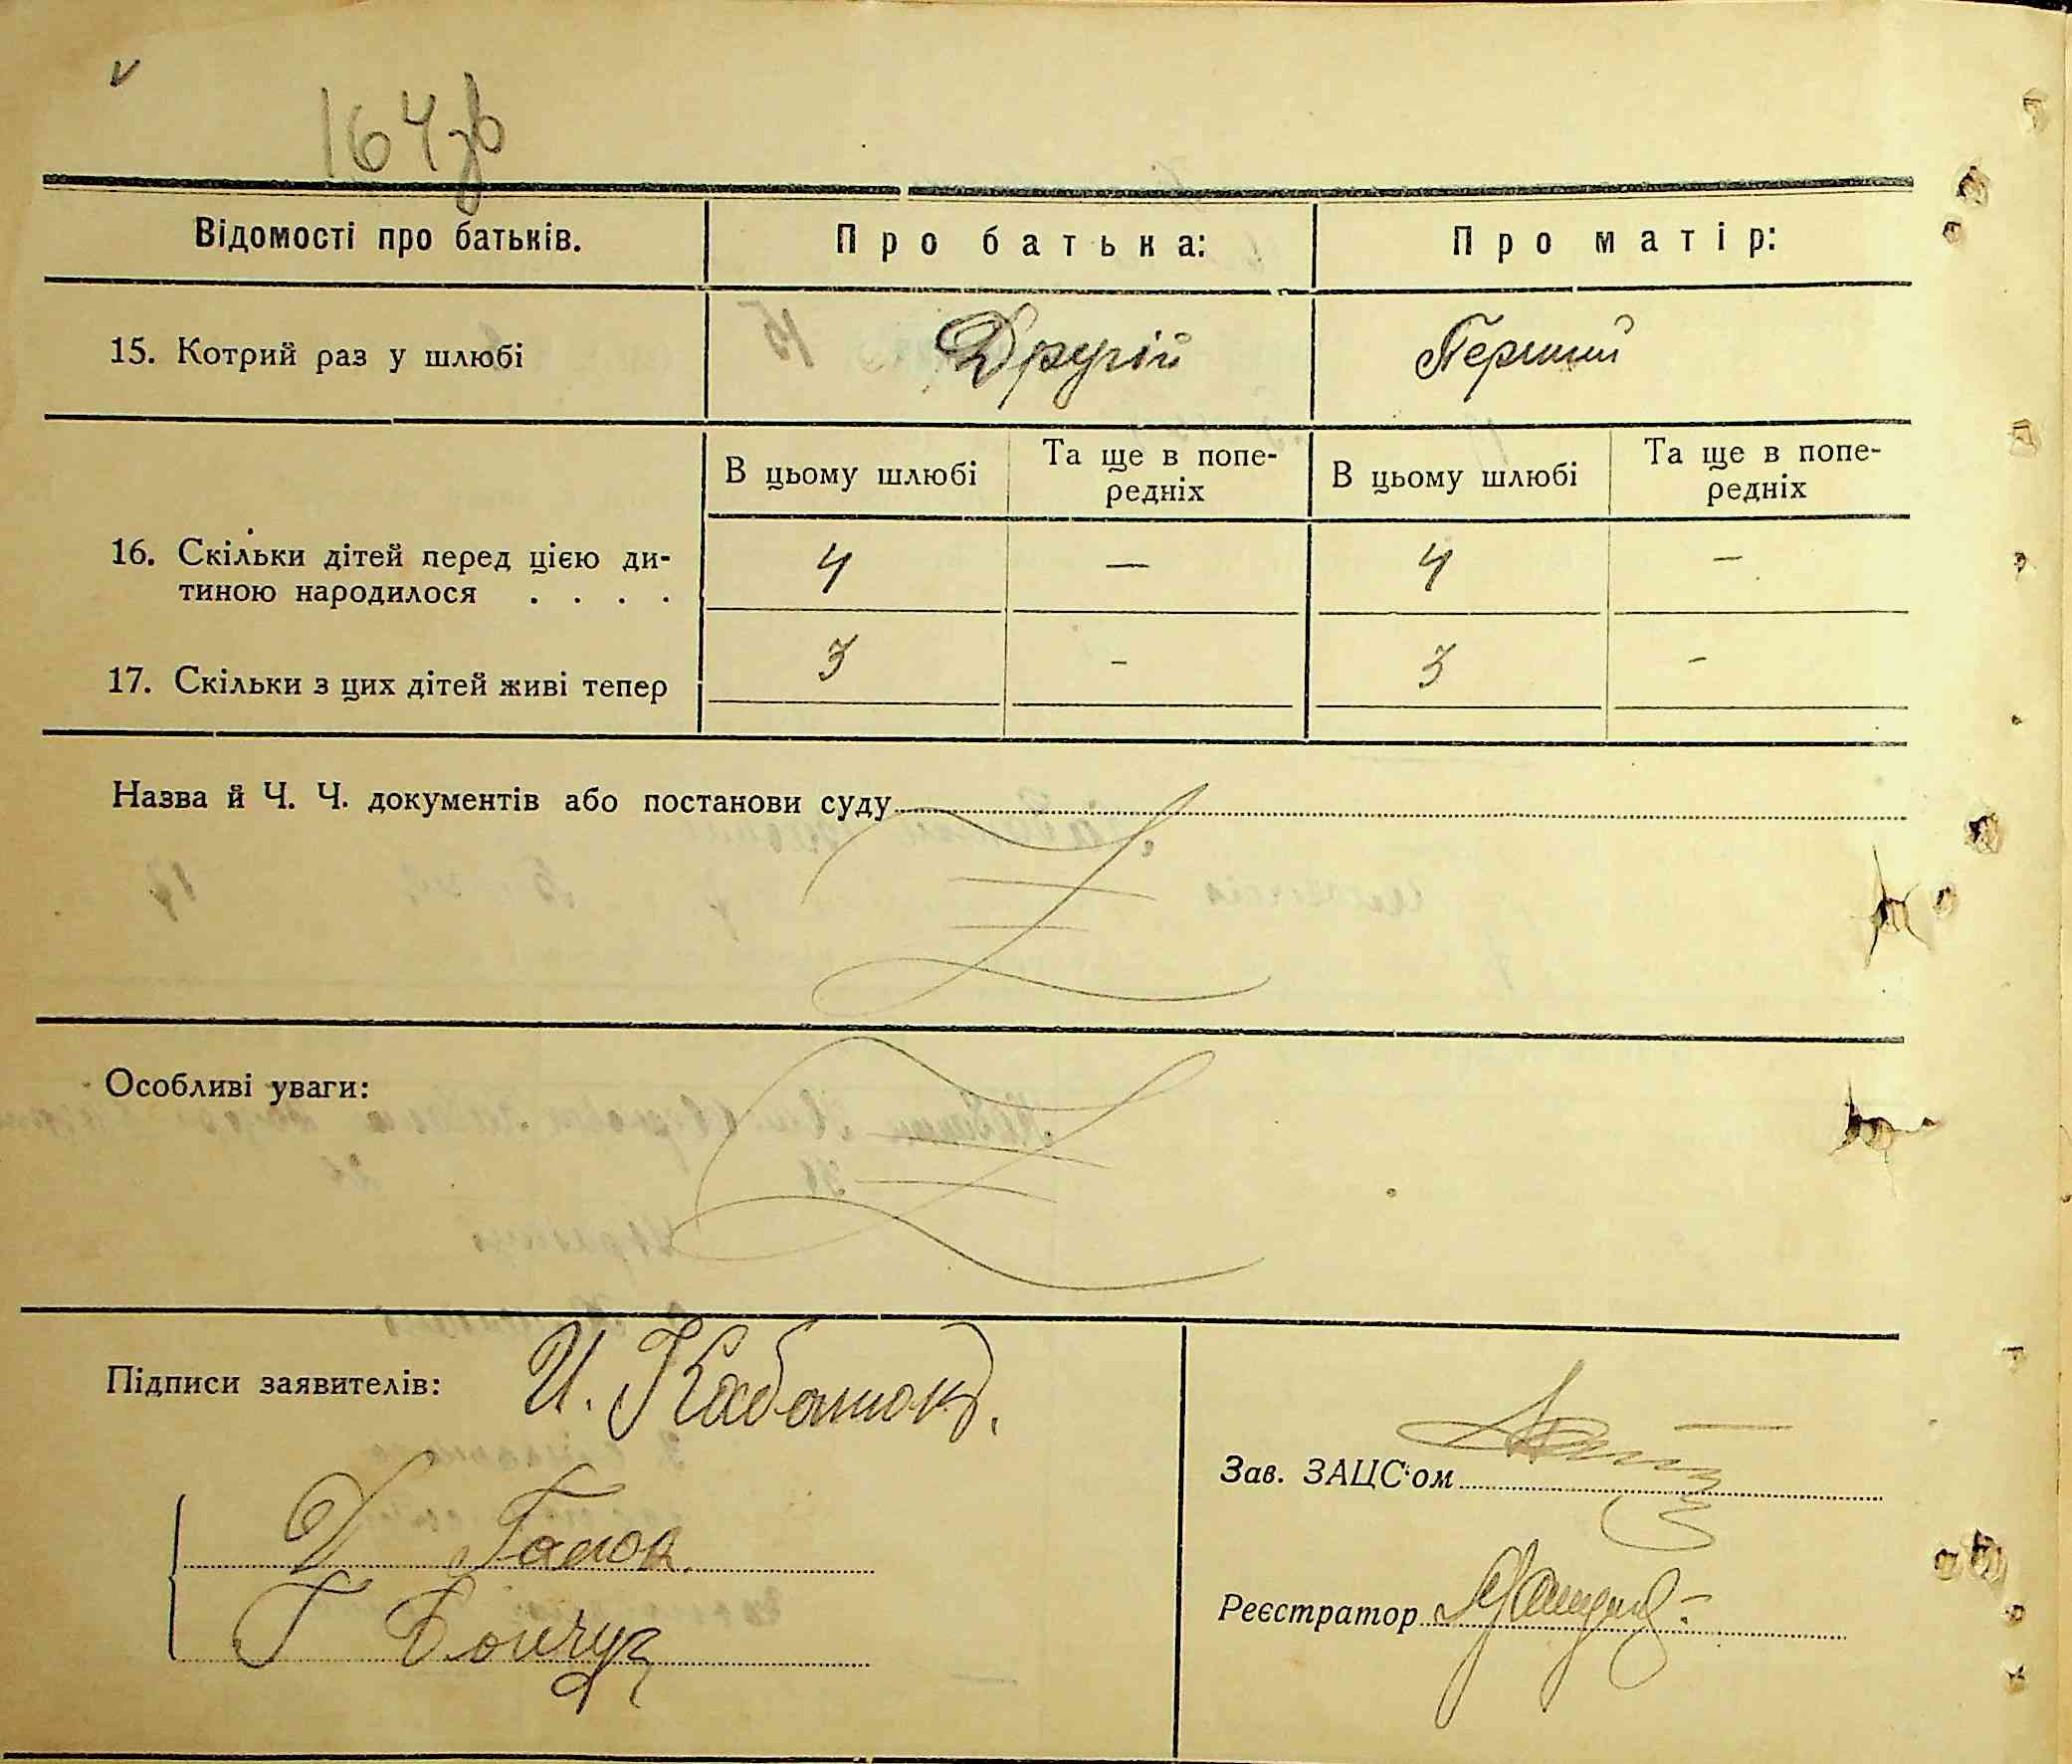 v
164зв
Відомості про батьків. Про батька: Про матір:
15. Котрий раз у шлюбі Другій Перший
В цьому шлюбі Та ще в попе- В цьому шлюбі Та ще в попе-
редніх редніх
16. Скільки дітей перед цією ди- 4 — 4 —
тиною народилося . . . .
17. Скільки з цих дітей живі тепер 3 - 3 -
Назва й Ч. Ч. документів або постанови суду
Особливі уваги:
Підписи заявителів: И. Кабатюк.
Зав. ЗАЦС'ом
Реєстратор